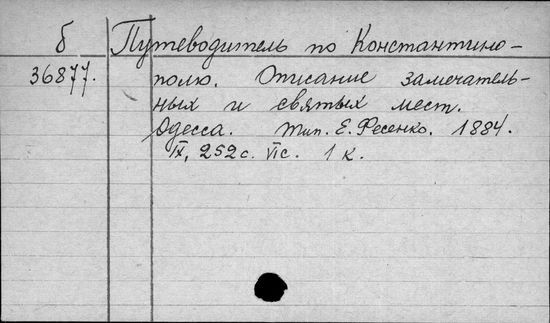 б Путеводитель по Константино-
36877. полю. Описание замечатель-
ных и святых мест.
Одесса. Тип. Е. Фесенко. 1884.
IX, 252 с. VI с. 1 к.